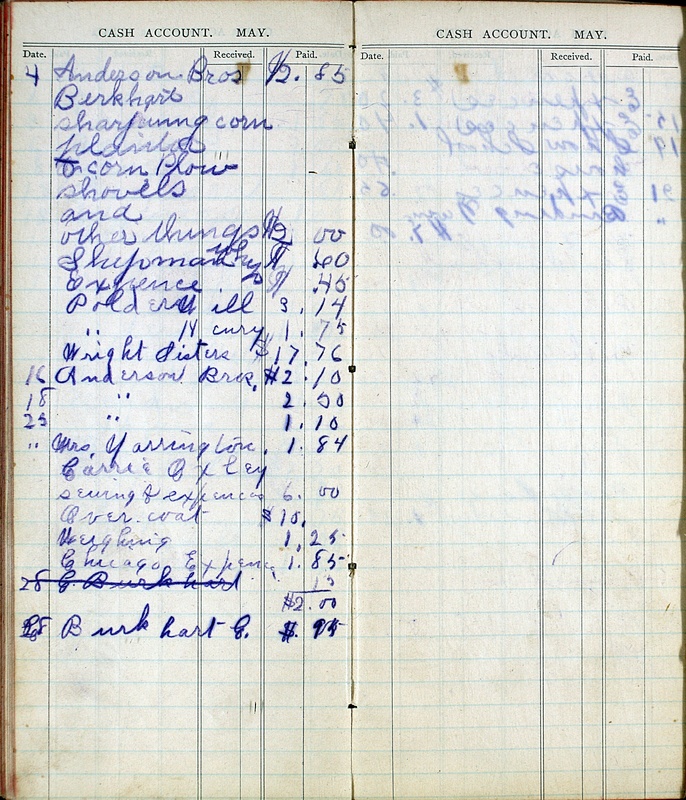 CASH ACCOUNT. MAY.
Date. Received. Paid.
4 Anderson Bros $2.85
Berkhart
sharpning corn
planter
corn Plow
shovels
and
other things $2 00
Shepman $ .60
Expence $ .45
Polders ill 3.14
" 14 cury 1.75
Wright Sisters $17.76
16 Anderson Bros. $2.10
18 " 2.50
23 " 1.10
" Mrs. Yarrington. 1.84
Carrie Oxley
sewing & expences 6.00
Over coat $10.
Weighing 1.25
Chicago Expence 1.85
28 E. Burkhart 15
$2.00
28 Burkhart E. $.95
CASH ACCOUNT. MAY.
Date. Received. Paid.